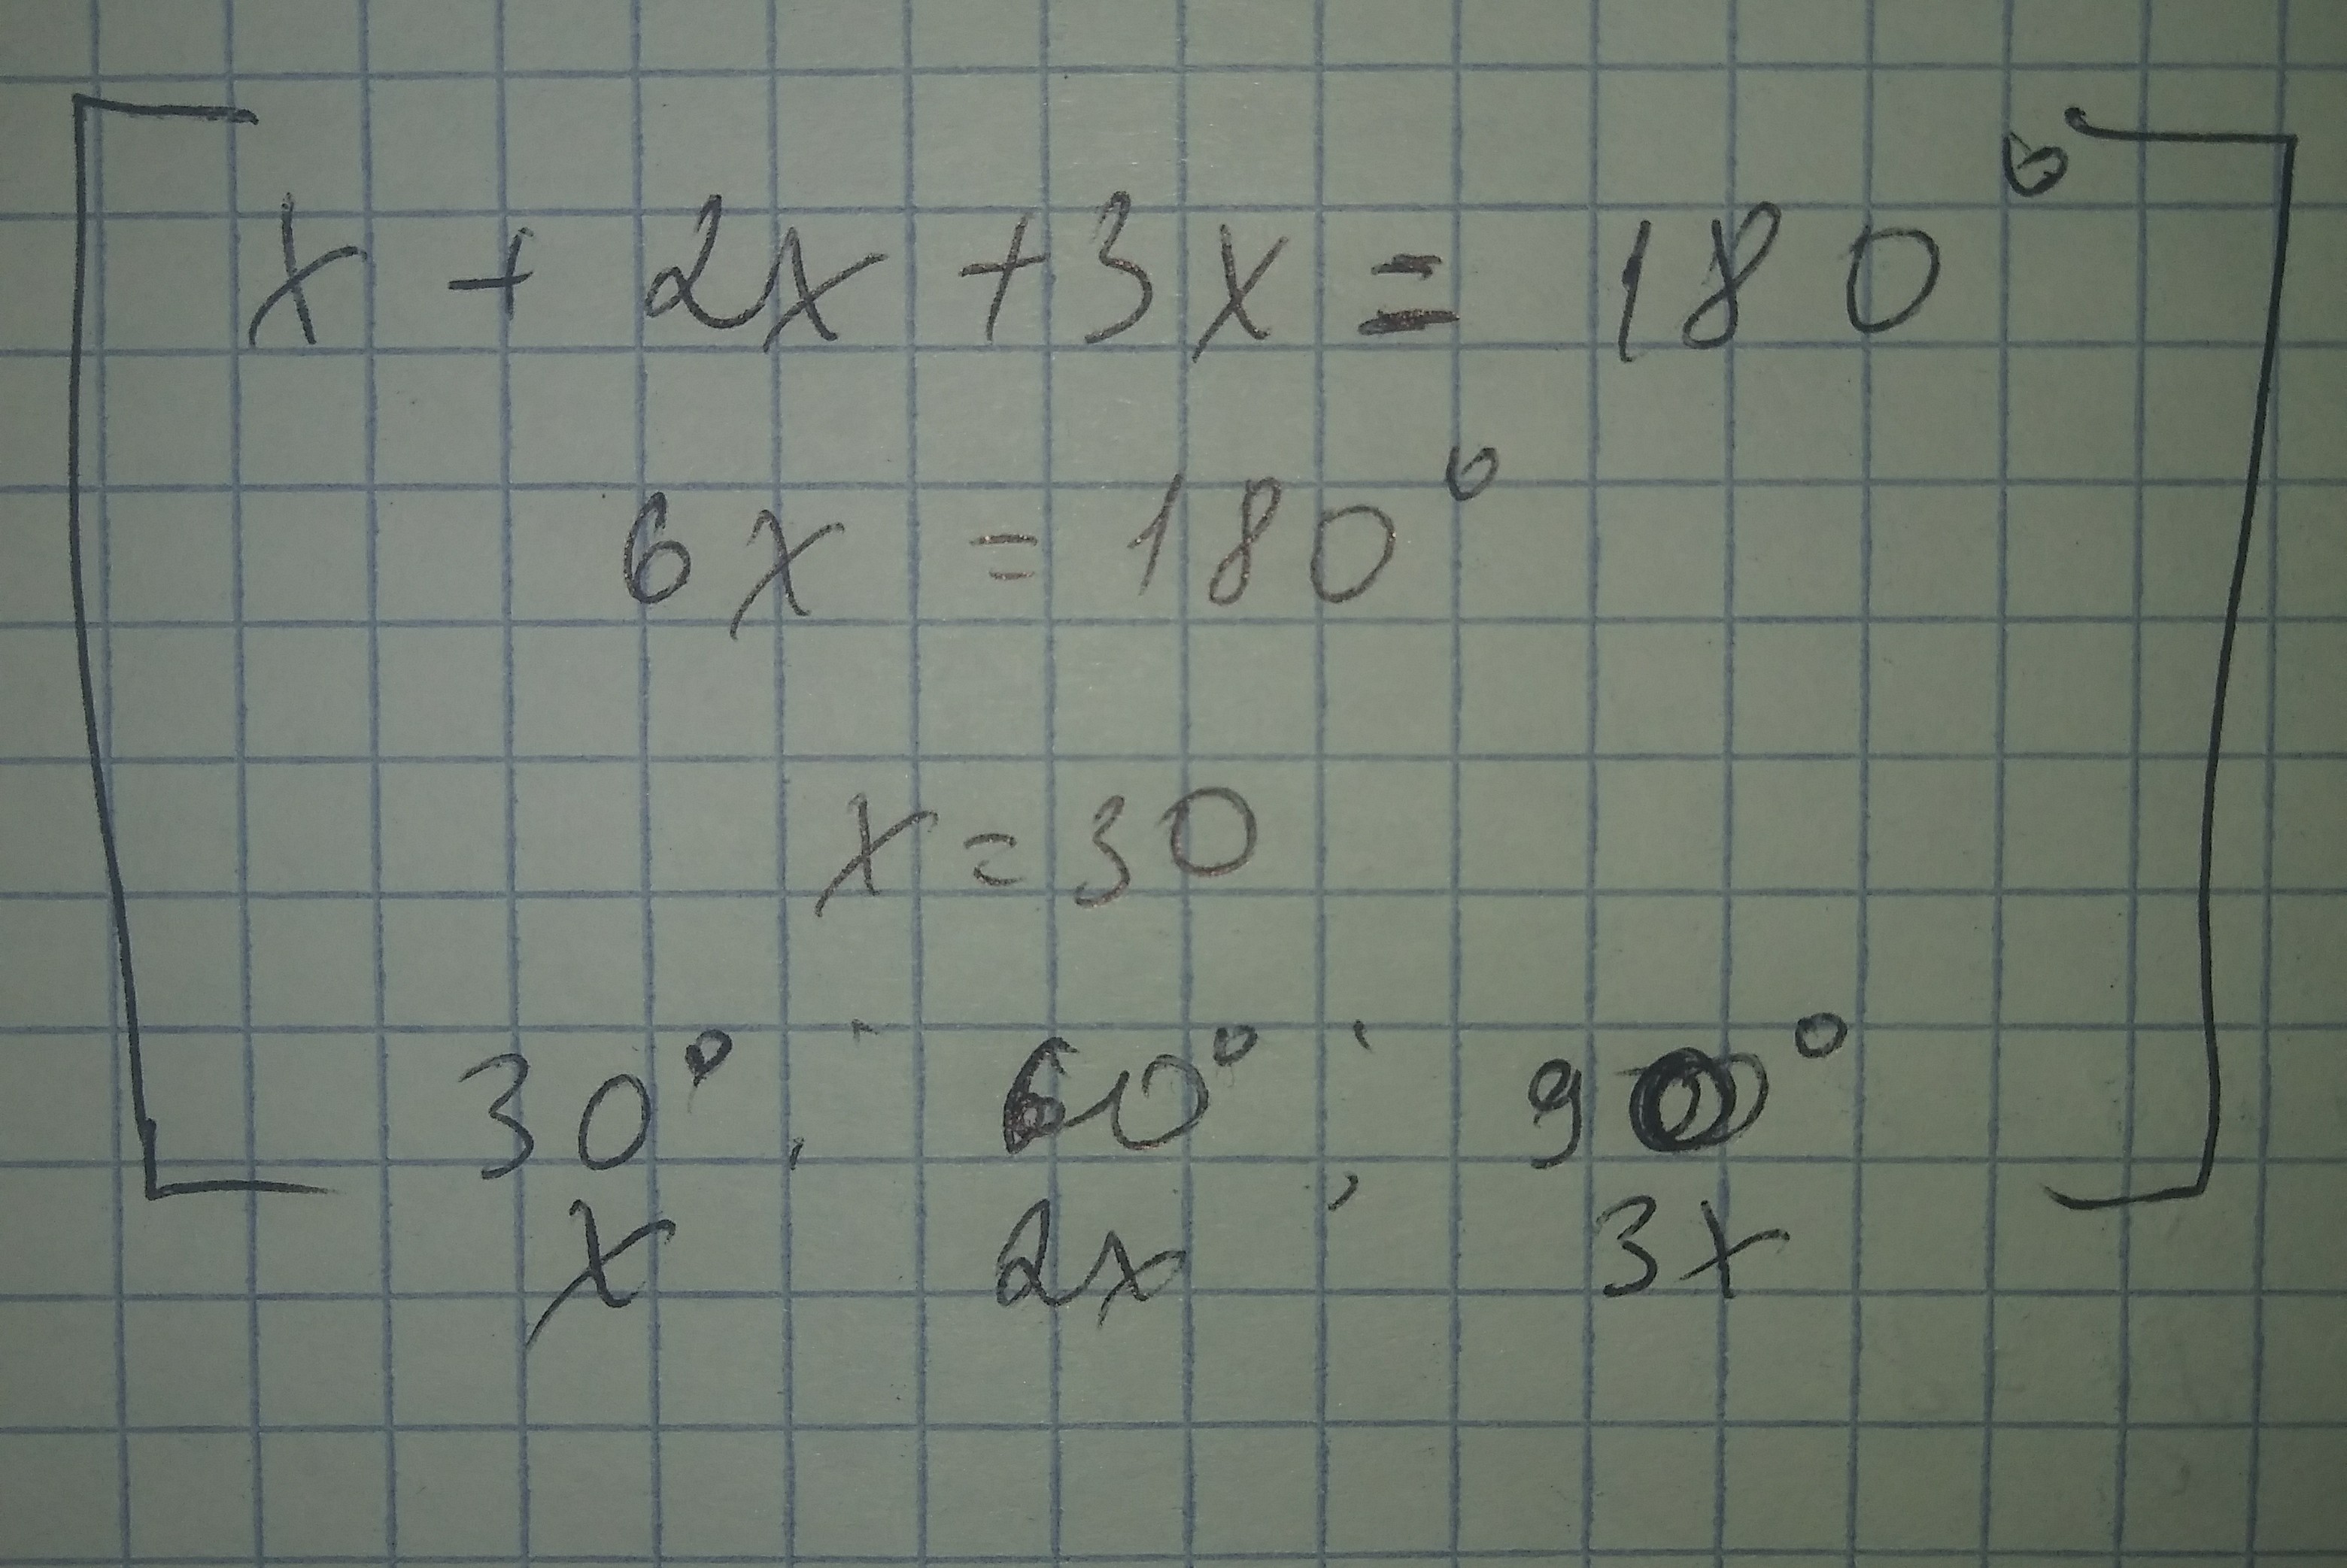 x + 2x + 3x = 180°
6x = 180°
x = 30
30° ; 60° ; 90°
x 2x 3x